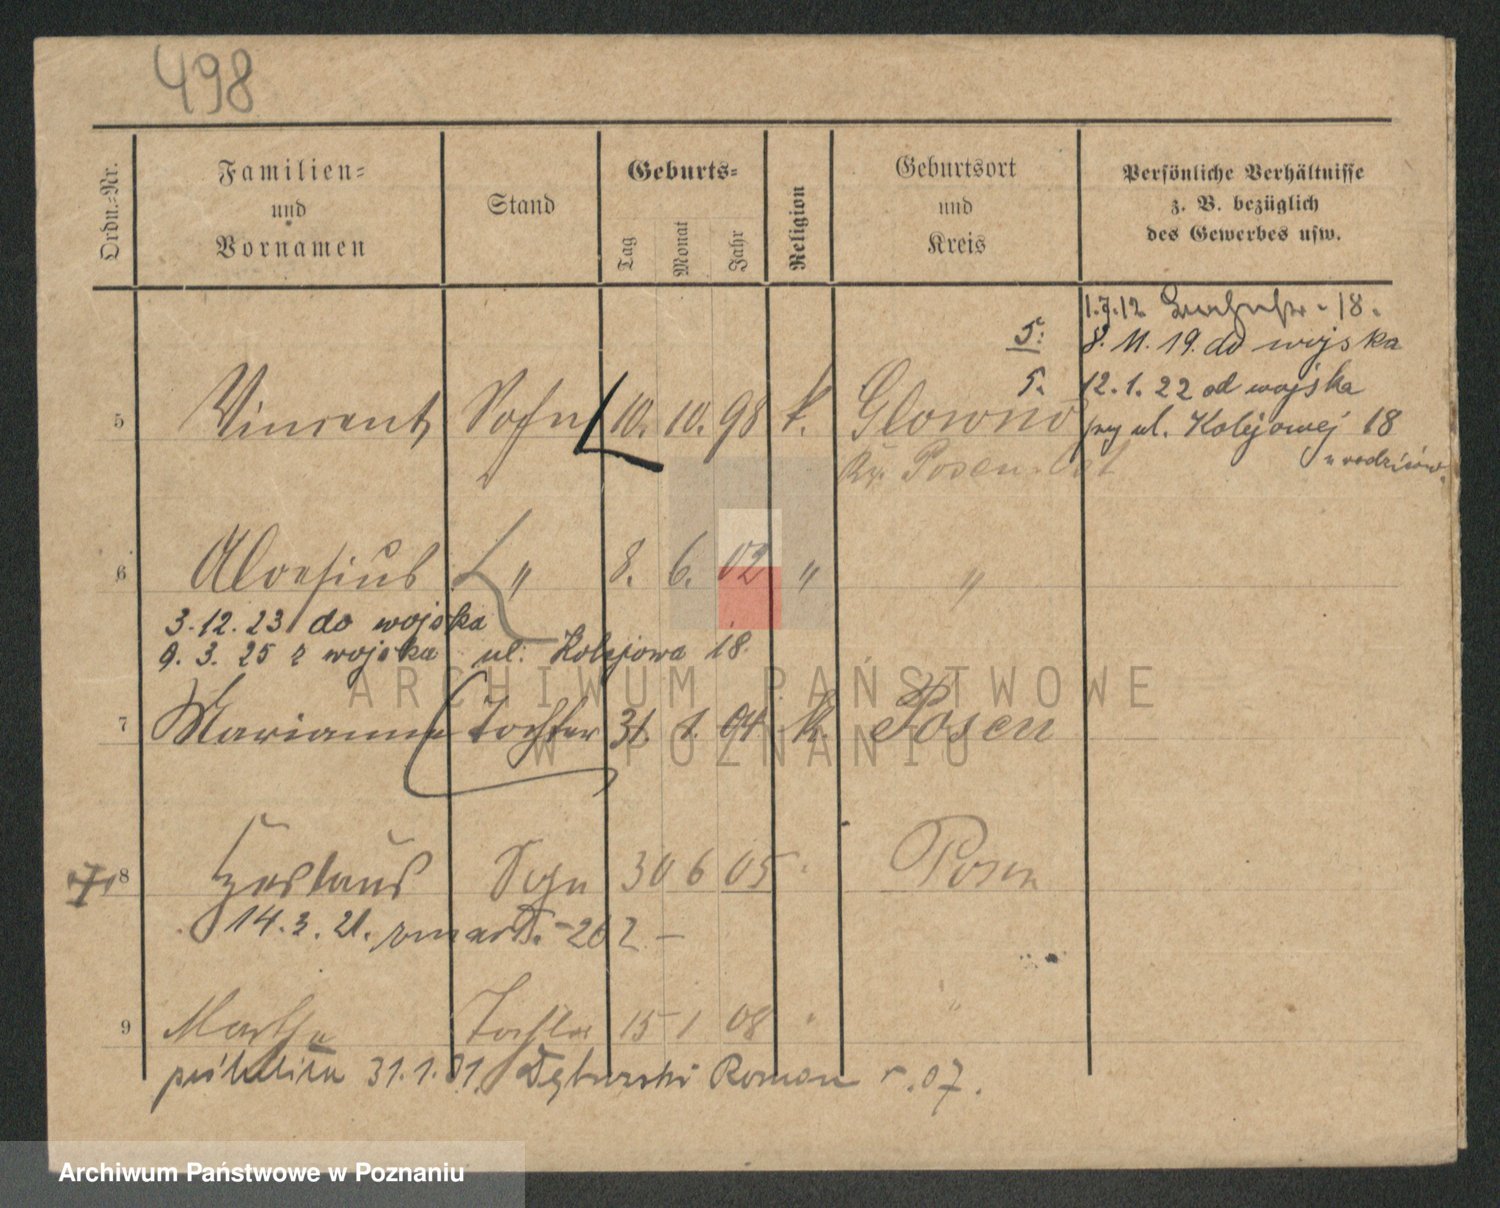 498
Ordn.-Nr.
Familien-
und
Vornamen
Stand
Geburts-
Tag
Monat
Jahr
Religion
Geburtsort
und
Kreis
Persönliche Verhältnisse
z. B. bezüglich
des Gewerbes usw.
1.7.12 - 18.
5. 8. 11. 19. do wojska
5. 12. 1. 22 od wojska
5 Vincent Sohn 10. 10. 98 k. Glowno
przy ul. Kolejowej 18
u rodziców.
Kr. Posen-Ost
6 Aloysius " 8. 6. 02 " "
3.12.23 do wojska
9. 3. 25 z wojska ul. Kolejowa 18.
ARCHIWUM PAŃSTWOWE
7 Marianna Tochter 31. 1. 04 k. Posen
W POZNANIU
8 Sohn 30 6 05 Posen
14. 3. 21. zmarł. - 202 -
9 Martha Tochter 15 1 08 " "
31. 1. 31. Roman r. 07.
Archiwum Państwowe w Poznaniu